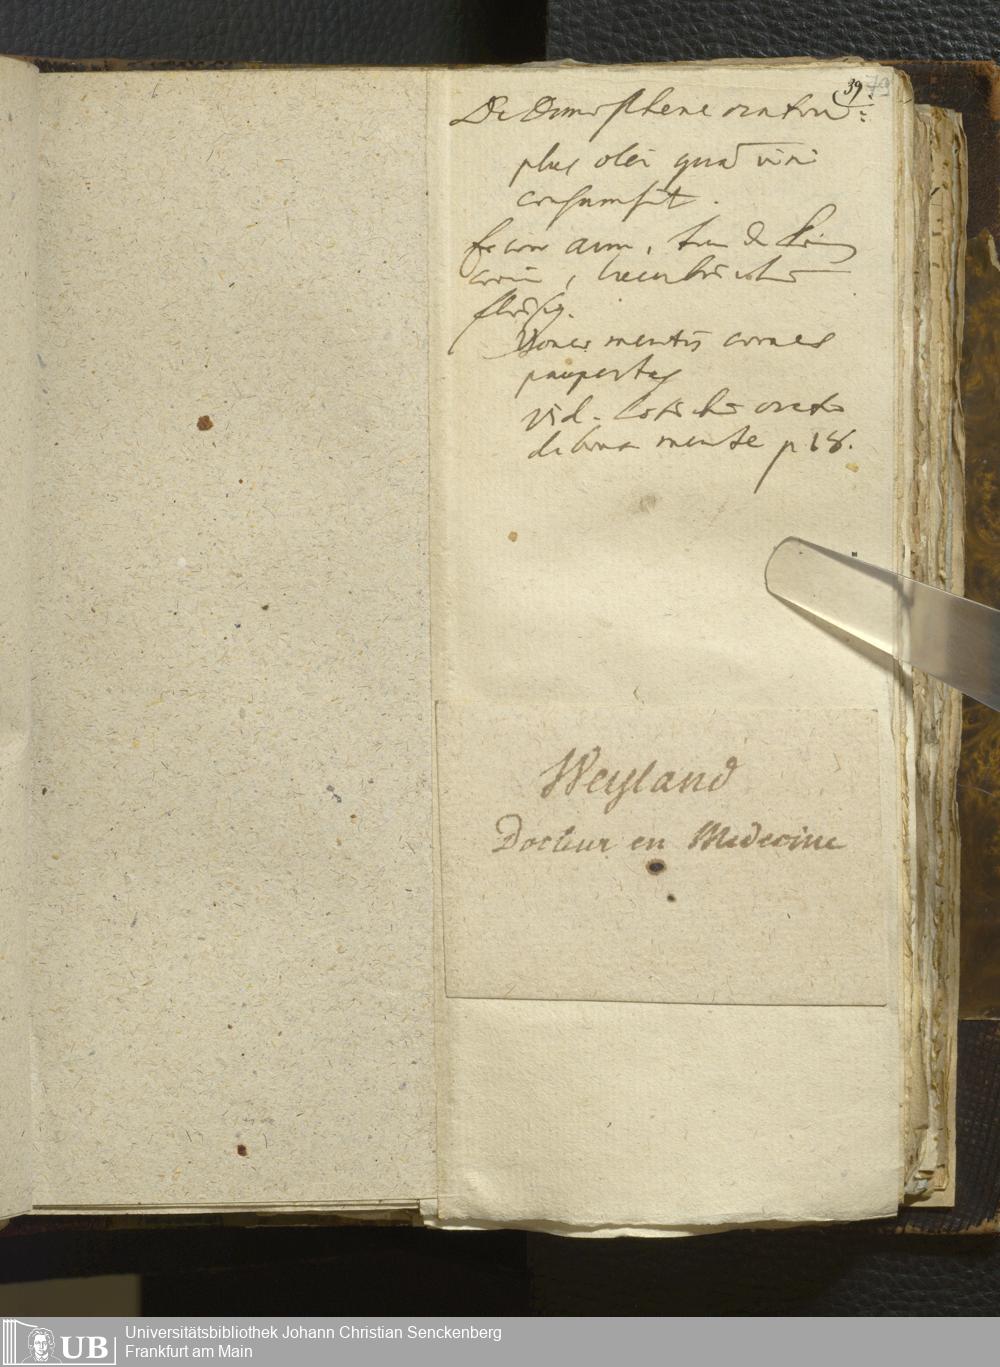 39. 79
De Demosthene oratore:
plus olei quā vini
consumsit.
fleissig.
Bonae mentis comes
paupertas
vid. Lotichii orat.
de bona mente p 18.
Weyland
Docteur en Medecine
UB
Universitätsbibliothek Johann Christian Senckenberg
Frankfurt am Main